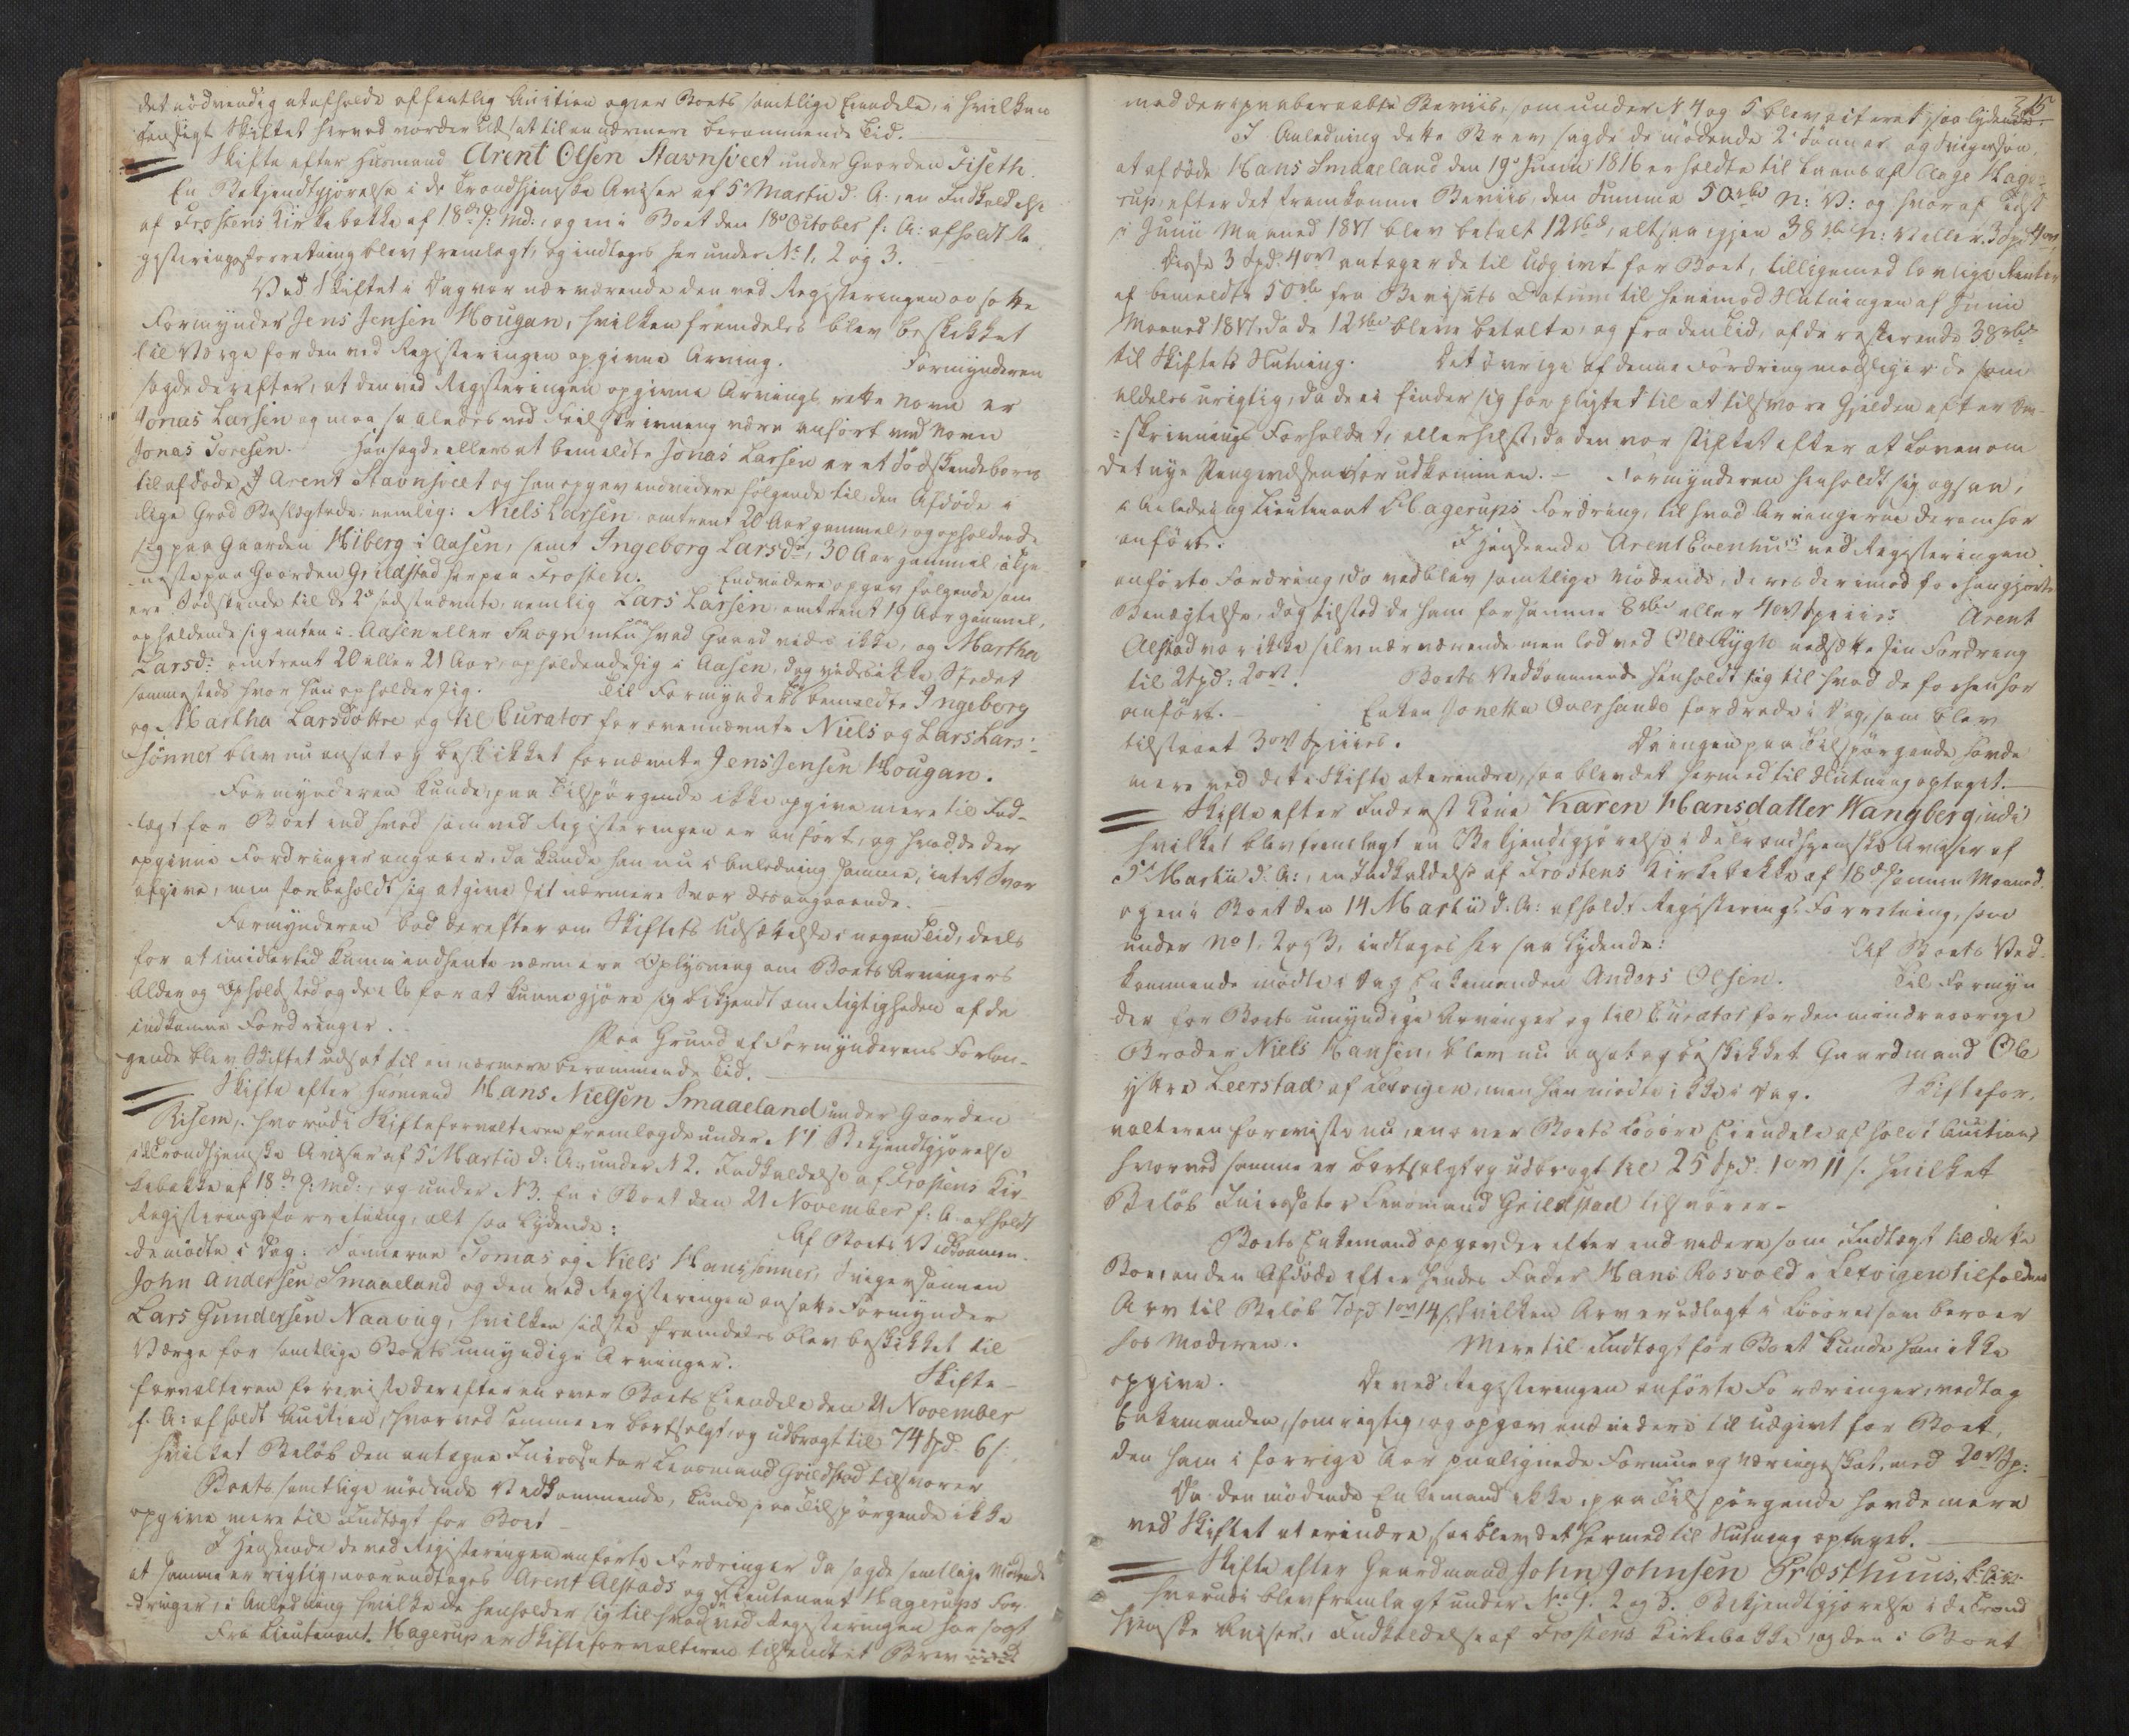 det nödvendig at afholde offentlig Auction over Boets samtlige Eiendele, i hvilken
henseigt Skiftet herved vorder udsat til en nærmere berammende Tid.
Skifte efter Huusmand Arent Olsen Stavnsveet under Gaarden Fiseth.
En Bekjendtgjørelse i de Trondhjemske Aviser af 5 Martii d. A., en Indkaldelse
af Frostens Kirkebakke af 18de s: Md:, og en i Boet den 18 October f: A: afholdt Re-
gisteringsforretning blev fremlagt, og indtages her under No 1, 2 og 3.
Ved Skiftet i Dag var nærværende den ved Registeringen ansatte
Formynder Jens Jensen Hougan, hvilken fremdeles blev beskikket
til Værge for den ved Registeringen opgivne Arving. Formynderen
sagde derefter, at den ved Registeringen opgivne Arvings rette Navn er
Jonas Larsen og maa saaledes ved Feilskrivning være anført med Navn
Jonas Toresen. Han sagde ellers at bemeldte Jonas Larsen er et Södskendebarn
til afdöde Arent Stavnsveet og han opgav endvidere følgende til den Afdöde i
lige Grad Beslægtede: nemlig: Niels Larsen omtrent 20 Aar gammel, opholdende
sig paa Gaarden Hiberg i Aasen, samt Ingeborg Larsdr, 30 Aar gammel, i Tje-
neste paa Gaarden Grildstad her paa Frosten. Endvidere opgav følgende som
ere Södskende til de 2de sidstnævnte, nemlig Lars Larsen omtrent 19 Aar gammel,
opholdende sig enten i Aasen eller Skogn men hvad Gaard vides ikke, og Martha
Larsd: omtrent 20 eller 21 Aar, opholdende sig i Aasen, dog vides ikke Stedet
sammesteds hvor hun opholder sig. Til Formynder for bemeldte Ingeborg
og Martha Larsdøttre og til Curator for ovennævnte Niels og Lars Lars-
sønner blev nu ansat og beskikket fornævnte Jens Jensen Hougan.
Formynderen kunde, paa Tilspørgende ikke opgive mere til Ind-
tægt for Boet end hvad som ved Registeringen er anført, og hvad de der
opgivne Fordringer angaaer, da kunde han nu i Anledning samme, intet Svar
afgive, men forbeholdt sig at give sit nærmere Svar desangaaende.
Formynderen bad derefter om Skiftets Udsættelse i nogen Tid, deels
for at imidlertid kunne indhente nærmere Oplysning om Boets Arvingers
Alder og Opholdsted og deels for at kunne gjøre sig bekjendt om Rigtigheden af de
indkomne Fordringer. Paa Grund af Formynderens Forlan-
gende blev Skiftet udsat til en nærmere berammende Tid.
Skifte efter Huusmand Hans Nielsen Smaaeland under Gaarden
Risem, hvorudi Skifteforvalteren fremlagde under No 1 Bekjendtgjørelse
i de Trondhjemske Aviser af 5 Martii d: A., under N 2. Indkaldelse af Frostens Kir-
kebakke af 18de s: Md:, og under N 3. En i Boet den 21 November f: A. afholdt
Registeringsforretning, alt saa lydende: Af Boets Vedkommen-
de mødte i Dag: Sønnerne Tomas og Niels Hanssønner, Svigersønnen
John Andersen Smaaeland og den ved Registeringen ansatte Formynder
Lars Gundersen Naavug, hvilken sidste fremdeles blev beskikket til
Værge for samtlige Boets umyndige Arvinger. Skifte-
forvalteren foreviste derefter en over Boets Eiendele den 21 November
f. A: afholdt Auction, hvorved samme er bortsolgt, og udbragt til 74 Spd. 6 s:,
hvilket Beløb den antagne Incassator Lensmand Grildstad tilsvarer
Boets samtlige mødende Vedkommende, kunde paa Tilspørgende ikke
opgive mere til Indtægt for Boet
I Henseende de ved Registeringen anførte Fordringer da sagde samtlige Mødende
at samme er rigtig, naar undtages Arent Alstads og Lieutenant Hagerups For-
dringer, i Anledning hvilke de henholder sig til hvad ved Registeringen har sagt
Fra Lieutenant Hagerup er Skifteforvalteren tilsendt et Brev
315
med derpaaberaabte Beviis, som under N 4 og 5 blev citeret, saa lydende:
I Anledning dette Brev, sagde de mødende 2de Sønner og Svigersøn,
at afdöde Hans Smaaeland den 19de Junii 1816 erholdte til Laans af Aage Hage-
rup, efter det fremkomne Beviis, den Summa 50 rbd n: V: og hvoraf sidst
i Junii Maaned 1817 blev betalt 12 rbd, altsaa igjen 38 rbd n: V eller 3 Spd 4 ort.
Disse 3 Spd. 4 ort antager de til Udgivt for Boet, tilligemed lovlige Renter
af bemeldte 50 rbd fra Bevisets Datum til henimod Slutningen af Junii
Maaned 1817, da de 12 rbd bleve betalte, og fra den Tid, af de resterende 38 rbd
til Skiftets Slutning. Det øvrige af denne Fordring modsiger de som
aldeles urigtig, da de ei finder sig forpligtet til at tilsvare Gjelden efter Om-
skrivnings Forholdet, allerhelst, da den var stiftet efter at Loven om
det nye Pengevæsen var udkommen. - Formynderen henholdt sig ogsaa,
i Anledning Lieutenant Hagerups Fordring, til hvad Arvingerne derom har
anført. I Henseende Arent Evenhuus ved Registeringen
anførte Fordring, da vedblev samtlige Mødende, deres derimod forhen gjorte
Benægtelse, dog tilstod de ham for samme 8 rbd eller 4 ort Speciies. Arent
Alstad var ikke selv nærværende men lod ved Ole Rygh nedsætte sin Fordring
til 2 Spd: 2 ort. Boets Vedkommende henholdt sig til hvad de forhen har
anført. - Enken Jonetta Oversande fordrede i Dag, som blev
tilstaaet 3 ort Speciies. Da ingen paa Tilspørgende havde
mere ved dette Skifte at erindre, saa blev det hermed til Slutning optaget.
Skifte efter Inderst Kone Karen Hansdatter Wangberg, udi
hvilket blev fremlagt en Bekjendtgjørelse i de Trondhjemske Aviser af
5te Martii d: A:, en Indkaldelse af Frostens Kirkebakke af 18de samme Maaned
og en i Boet den 14 Martii d: A: afholdt Registerings Forretning, som
under No 1, 2 og 3, indtages her saa lydende: Af Boets Ved-
kommende mødte i Dag Enkemanden Anders Olsen. Til Formyn-
der for Boets umyndige Arvinger og til Curator for den mindreaarige
Broder Niels Hansen, blev nu ansat og beskikket Gaardmand Ole
yttre Leerstad af Lexvigen, men han mødte ikke i Dag. Skiftefor-
valteren foreviste nu, en over Boets Løsøre Eiendele afholdt Auction
hvorved samme er bortsolgt og udbragt til 25 Spd. 1 ort 11 s. hvilket
Beløb Incassator Lensmand Grildstad tilsvarer -
Boets Enkemand opgav derefter endvidere som Indtægt til dette
Boe, en den Afdöde efter hendes Fader Hans Rosvold i Lexvigen tilfalden
Arv til Beløb 7 Spd 1 ort 14 s, hvilken Arv er udlagt i Løsøre som beroer
hos Moderen. Mere til Indtægt for Boet kunde han ikke
opgive. De ved Registeringen anførte Fordringer, vedtog
Enkemanden, som rigtig, og opgav endvidere til Udgivt for Boet,
den ham i forrige Aar paalignede Formue og Næringsskat, med 2 ort Sp:
Da den mødende Enkemand ikke, paa Tilspørgende havde mere
ved Skiftet at erindre, saa blev det hermed til Slutning optaget.
Skifte efter Gaardmand John Johnsen Præsthuus,
hvorudi blev fremlagt under No 1. 2 og 3. Bekjendtgjørelse i de Trond-
hjemske Aviser, Indkaldelse af Frostens Kirkebakke, og den i Boet